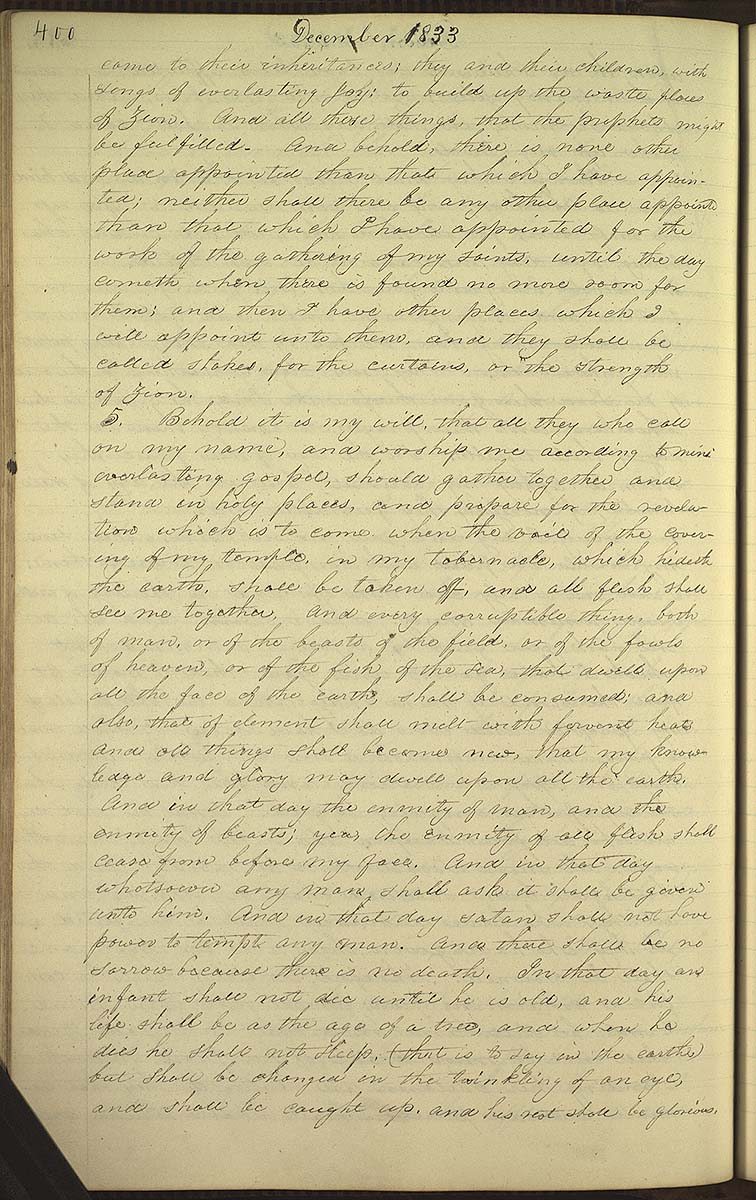 400 December 1833
come to their inheritances; they and their children, with
songs of everlasting Joy; to build up the waste places
of Zion. And all these things, that the prophets might
be fulfilled. And behold, there is none other
place appointed than that which I have appoin-
ted; neither shall there be any other place appointed
than that which I have appointed for the
work of the gathering of my saints, until the day
cometh when there is found no more room for
them; and then I have other places which I
will appoint unto them, and they shall be
called stakes, for the curtains, or the strength
of Zion.
5. Behold it is my will, that all they who call
on my name, and worship me according to mine
everlasting gospel, should gather together and
stand in holy places, and prepare for the revela-
tion which is to come when the vail of the cover-
ing of my temple, in my tabernacle, which hideth
the earth, shall be taken off, and all flesh shall
see me together. And every corruptible thing, both
of man, or of the beasts of the field, or of the fowls
of heaven, or of the fish of the sea, that dwell upon
all the face of the earth, shall be consumed; and
also, that of element shall melt with fervent heat
and all things shall become new, that my know-
ledge and glory may dwell upon all the earth.
And in that day the enmity of man, and the
enmity of beasts; yea, the enmity of all flesh shall
cease from before my face. And in that day
whatsoever any man shall ask it shall be given
unto him. And in that day satan shall not have
power to tempt any man. And there shall be no
sorrow because there is no death. In that day an
infant shall not die until he is old, and his
life shall be as the age of a tree, and when he
dies he shall not sleep, (that is to say in the earth,)
but shall be changed in the twinkling of an eye,
and shall be caught up, and his rest shall be glorious.